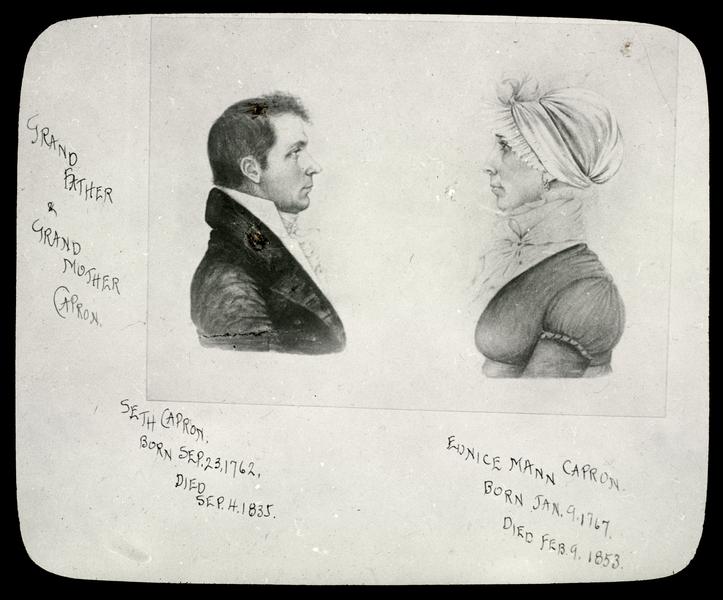 GRAND
FATHER
&
GRAND
MOTHER
CAPRON.
SETH CAPRON.
BORN SEP. 23, 1762,
DIED
SEP. 4. 1835.
EUNICE MANN CAPRON.
BORN JAN. 9. 1767.
DIED FEB. 9. 1853.